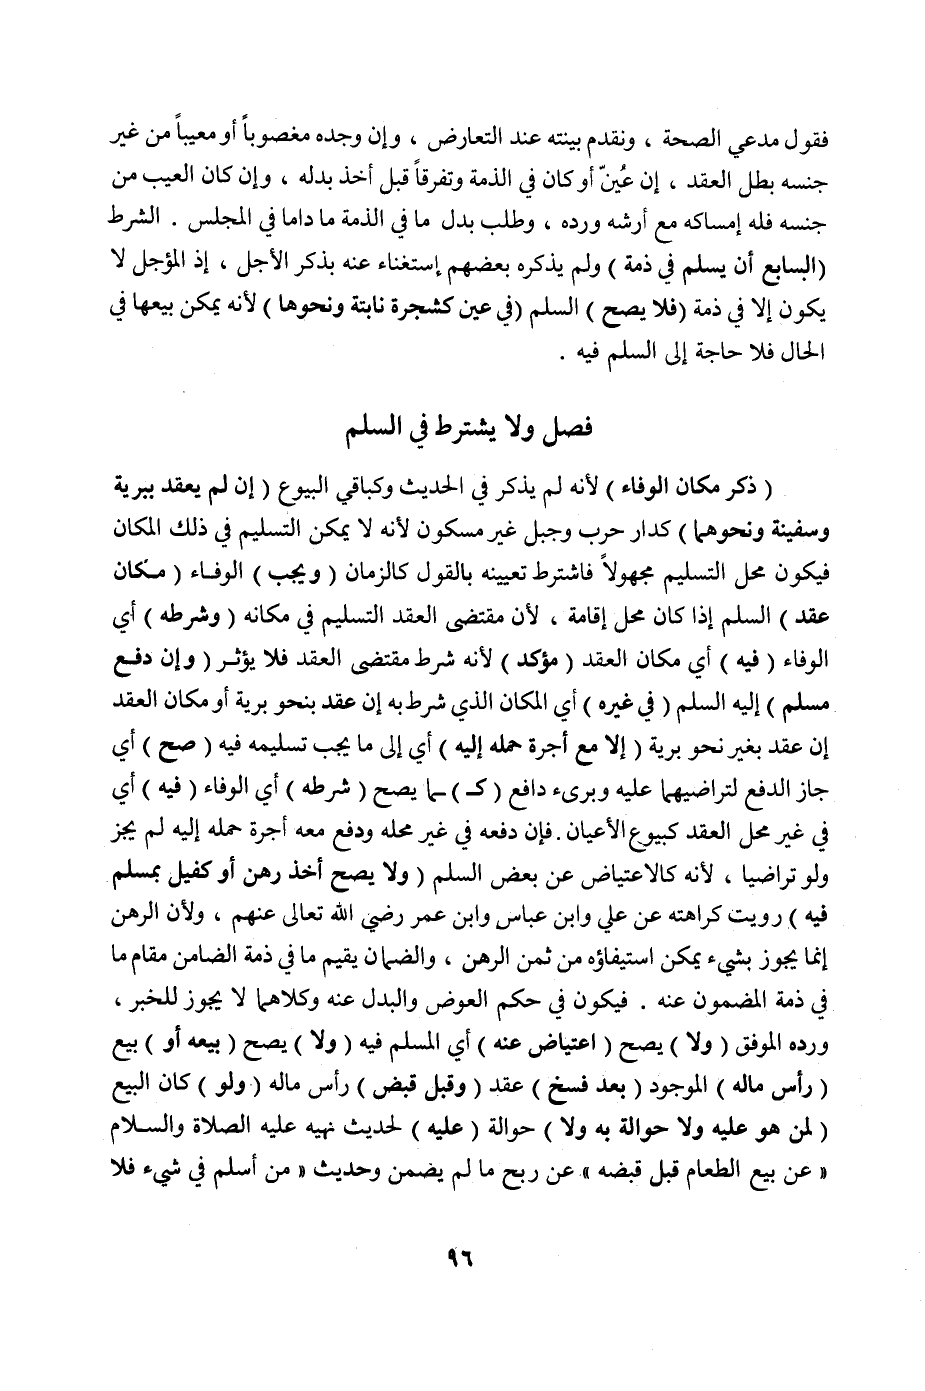 فقول مدعي الصحة ، ونقدم بينته عند التعارض ، وإن وجده مغصوباً أو معيباً من غير
جنسه بطل العقد ، إن عُينّ أو كان في الذمة وتفرقاً قبل أخذ بدله ، وإن كان العيب من
جنسه فله إمساكه مع أرشه ورده ، وطلب بدل ما في الذمة ما داما في المجلس . الشرط
(السابع أن يسلم في ذمة ) ولم يذكره بعضهم إستغناء عنه بذكر الأجل ، إذ المؤجل لا
يكون إلا في ذمة (فلا يصح ) السلم (في عين كشجرة نابتة ونحوها ) لأنه يمكن بيعها في
الحال فلا حاجة إلى السلم فيه .
فصل ولا يشترط في السلم
( ذكر مكان الوفاء ) لأنه لم يذكر في الحديث وكباقي البيوع ( إن لم يعقد ببرية
وسفينة ونحوهما ) كدار حرب وجبل غير مسكون لأنه لا يمكن التسليم في ذلك المكان
فيكون محل التسليم مجهولاً فاشترط تعيينه بالقول كالزمان ( ويجب ) الوفاء ( مكان
عقد ) السلم إذا كان محل إقامة ، لأن مقتضى العقد التسليم في مكانه ( وشرطه ) أي
الوفاء ( فيه ) أي مكان العقد ( مؤكد ) لأنه شرط مقتضى العقد فلا يؤثر ( وإن دفع
مسلم ) إليه السلم ( في غيره ) أي المكان الذي شرط به إن عقد بنحو برية أو مكان العقد
إن عقد بغير نحو برية ( إلا مع أجرة حمله إليه ) أي إلى ما يجب تسليمه فيه ( صح ) أي
جاز الدفع لتراضيهما عليه وبرىء دافع ( كـ ) ـما يصح ( شرطه ) أي الوفاء ( فيه ) أي
في غير محل العقد كبيوع الأعيان . فإن دفعه في غير محله ودفع معه أجرة حمله إليه لم يجز
ولو تراضيا ، لأنه كالاعتياض عن بعض السلم ( ولا يصح أخذ رهن أو كفيل بمسلم
فيه ) رويت كراهته عن علي وابن عباس وابن عمر رضي الله تعالى عنهم ، ولأن الرهن
إنما يجوز بشيء يمكن استيفاؤه من ثمن الرهن ، والضمان يقيم ما في ذمة الضامن مقام ما
في ذمة المضمون عنه . فيكون في حكم العوض والبدل عنه وكلاهما لا يجوز للخبر ،
ورده الموفق ( ولا ) يصح ( اعتياض عنه ) أي المسلم فيه ( ولا ) يصح ( بيعه أو ) بيع
( رأس ماله ) الموجود ( بعد فسخ ) عقد ( وقبل قبض ) رأس ماله ( ولو ) كان البيع
( لمن هو عليه ولا حوالة به ولا ) حوالة ( عليه ) لحديث نهيه عليه الصلاة والسلام
« عن بيع الطعام قبل قبضه » عن ربح ما لم يضمن وحديث « من أسلم في شيء فلا
٩٦